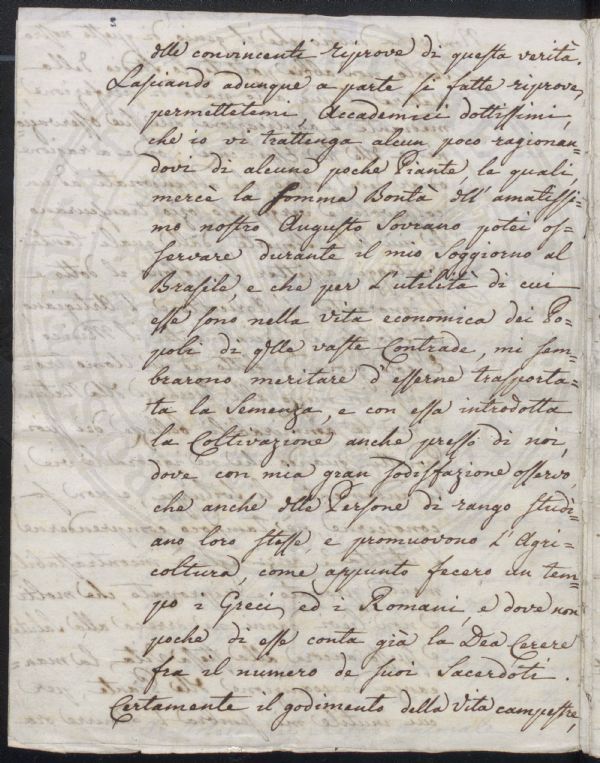 dlle convincenti riprove di questa verità.
Lasciando adunque a parte sì fatte riprove,
permettetemi, Accademici dottissimi,
che io vi trattenga alcun poco ragionan=
dovi di alcune poche Piante, le quali,
mercè la somma Bontà dll' amatissi=
mo nostro Augusto Sovrano potei os=
servare durante il mio Soggiorno al
Brasile, e che per l'utilità di cui
esse sono nella vita economica dei Po=
poli di qlle vaste Contrade, mi sem=
brarono meritare d'esserne trasporta=
ta la Semenza, e con essa introdotta
la Coltivazione anche presso di noi,
dove con mia gran sodisfazione osservo,
che anche dlle Persone di rango studi=
ano loro stesse, e promuovono l'Agri=
coltura, come appunto fecero un tem=
po i Greci, ed i Romani, e dove non
poche di esse conta già la Dea Cerere
fra il numero de suoi Sacerdoti.
Certamente il godimento della vita campestre,